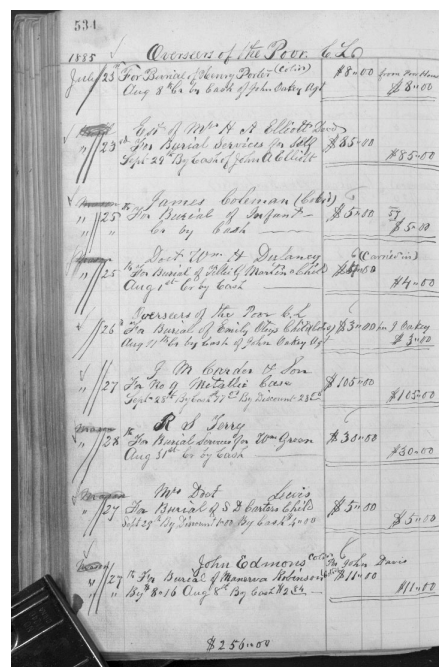 534
1885 Overseers of the Poor C. L.
July 23 For Burial of Henry Porter (Cold) $8"00 from Poor House
Aug 8th Cr by Cash of John Oakey Agt $8"00
Est of Mrs H A Elliott Dec'd
" 23 For Burial Services for $85"00
Sept 29th By Cash of Elliott $85"00
James Coleman (Cold)
" 25th For Burial of Infant $5"00
Cr by Cash $5"00
Doct Wm H Dulaney (Carried in)
" 25th For Burial of Martin's Child
Aug 1st Cr by Cash $4"00
Overseers of the Poor C. L.
" 26th For Burial of Emily Child (Cold) $3"00 J Oakey
Aug Cr by Cash of John Oakey Agt $3"00
J M Carder & Son
" 27 For No 9 Metallic Case $105"00
Sept 28th By Cash By Discount $105"00
R S Terry
" 28th For Burial Services for Wm Green $30"00
Aug 31st Cr by Cash $30"00
Mrs Doct Lewis
" 27 For Burial of S D Carters Child $5"00
Sept 29th By Discount 1"00 By Cash $4"00 $5"00
John Edmons Cold Pr John Davis
" 27th For Burial of Manerva Robinson $11"00
" " By $8"16 Aug 8th By Cash $2"84 $11"00
$256"00